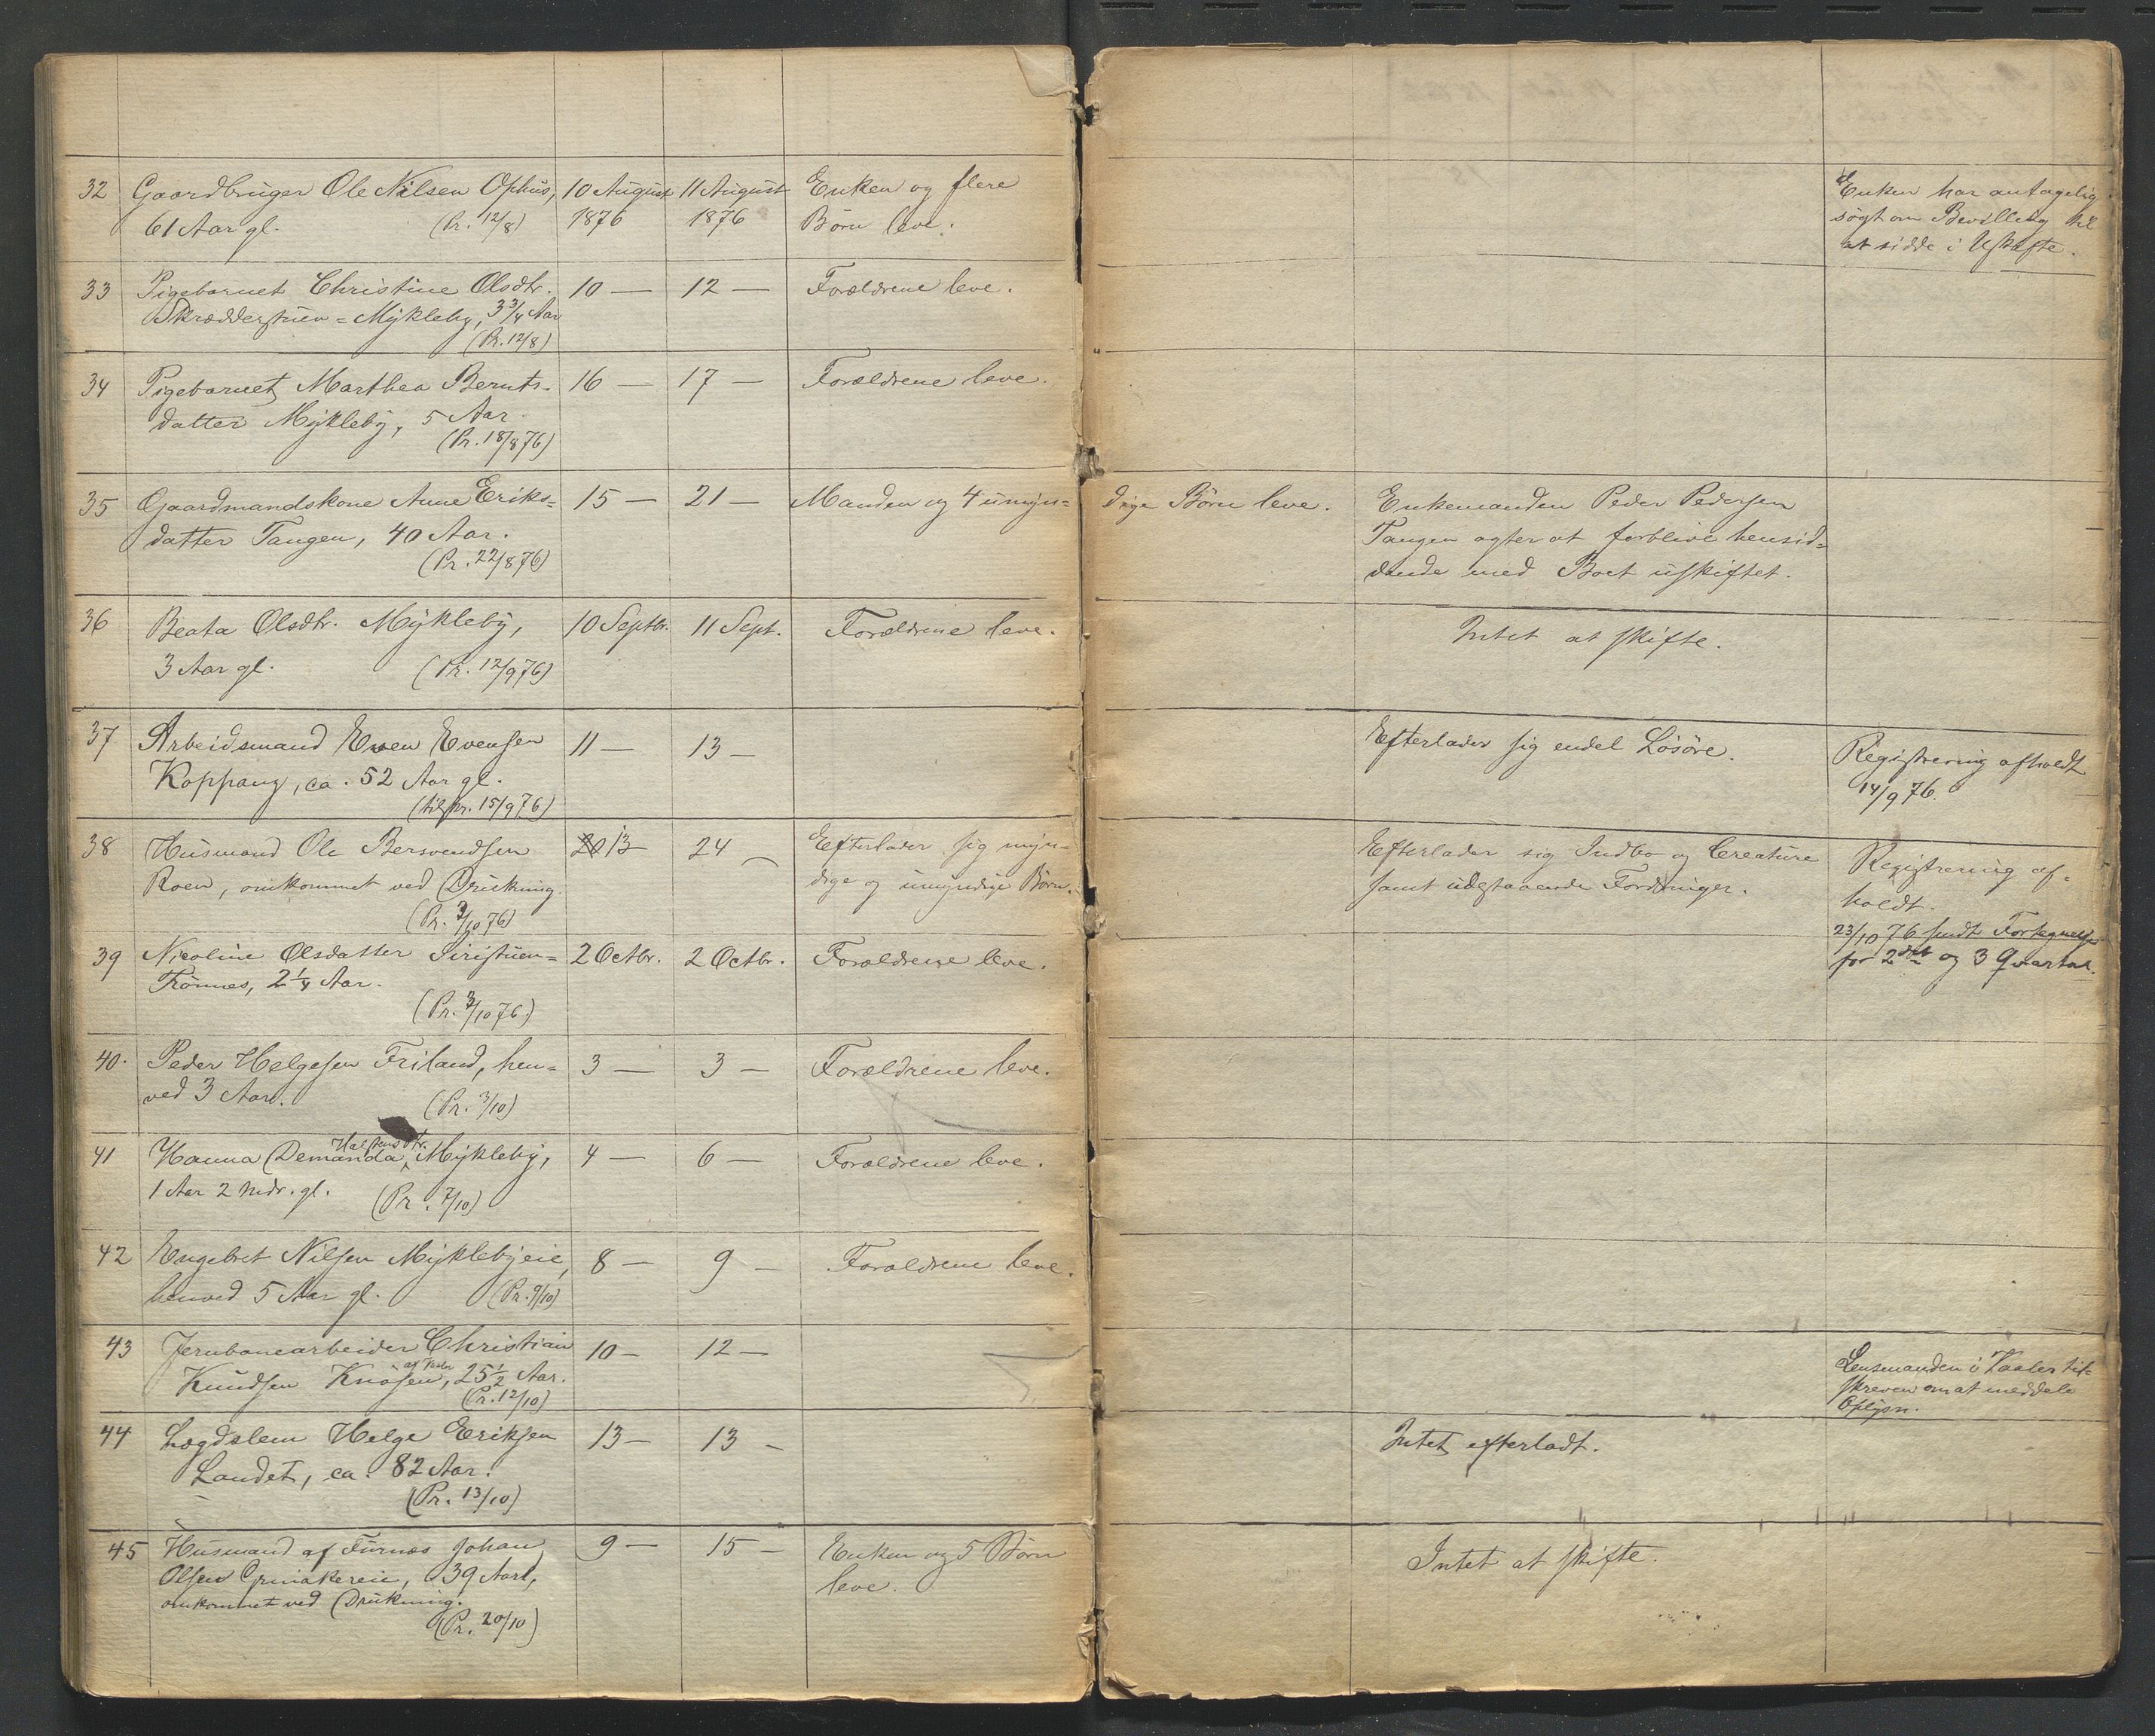 32 Gaardbruger Ole Nilsen Ophus, 10 August 11 August Enken og flere Enken har antagelig
61 Aar gl. (Pr. 12/8) 1876 1876 Børn leve. søgt om Bevilling til
at sidde i Uskifte.
33 Pigebarnet Christine Olsdtr. 10 — 12 — Forældrene leve.
Skrædderstuen = Mykleby, 3 3/4 Aar
(Pr. 12/8)
34 Pigebarnet Marthea Bernts- 16 — 17 — Forældrene leve.
datter Mykleby, 5 Aar.
(Pr. 18/8 76)
35 Gaardmandskone Anne Eriks= 15 — 21 — Manden og 4 umyn= dige Børn leve. Enkemanden Peder Pedersen
datter Tangen, 40 Aar. Tangen agter at forblive hensid=
(Pr. 22/8 76) dende med Boet uskiftet.
36 Beata Olsdtr. Mykleby, 10 Septbr. 11 Sept. Forældrene leve. Intet at skifte.
3 Aar gl. (Pr. 12/9 76)
37 Arbeidsmand Even Evensen 11 — 13 — Efterlader sig endel Løsøre. Registrering afholdt
Koppang, ca. 52 Aar gl. 14/9 76.
(Pr. 15/9 76)
38 Husmand Ole Bersvendsen 20 13 24 — Efterlader sig myn- Efterlader sig Indbo og Creature Registrering af-
Roen, omkommet ved Drukning. dige og umyndige Børn. samt udestaaende Fordringer. holdt.
(Pr. 2/10 76) 23/10 76 sendt Fortegnelse
39 Nicoline Olsdatter Siristuen= 2 Octbr. 2 Octbr. Forældrene leve. for 2det og 3 Qvartal.
Trønnes, 2 1/4 Aar.
(Pr. 3/10 76)
40. Peder Helgesen Friland, hen= 3 — 3 — Forældrene leve.
ved 3 Aar. (Pr. 3/10)
Halstensdtr.
41 Hanna Demanda Mykleby, 4 — 6 — Forældrene leve.
1 Aar 2 Mdr. gl. (Pr. 7/10)
42 Engebret Nilsen Myklebyeie, 8 — 9 — Forældrene leve.
henved 5 Aar gl. (Pr. 9/10)
43 Jernbanearbeider Christian 10 — 12 — Lensmanden i Vaaler til-
Knudsen Knøsen, 25 1/2 Aar. skreven om at meddele
(Pr. 12/10) Oplysn.
44 Lægdslem Helge Eriksen 13 — 13 — Intet efterladt.
Landet, ca. 82 Aar.
(Pr. 13/10)
45 Husmand af Furnæs Johan 9 — 15 — Enken og 5 Børn Intet at skifte.
Olsen 39 Aar, leve.
omkommet ved Drukning.
(Pr. 20/10)